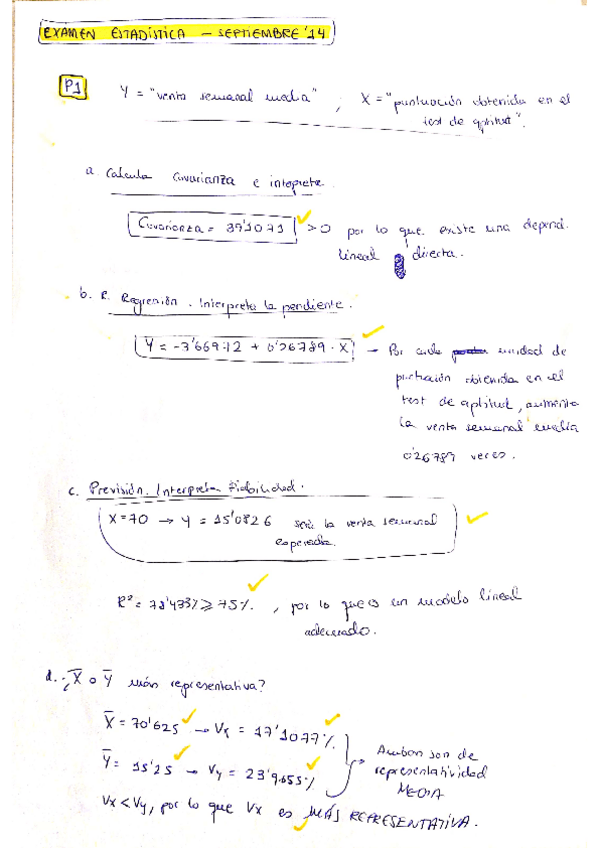 EXAMEN ESTADÍSTICA – SEPTIEMBRE '14
P1
Y = "venta semanal media" ; X = "puntuación obtenida en el
test de aptitud".
a. Calcula Covarianza e interpreta.
Covarianza = 39'1071 >0 por lo que existe una depend.
lineal directa.
b. R. Regresión. Interpreta la pendiente.
Y = -3'66972 + 0'26789 · X – Por cada unidad de
puntuación obtenida en el
test de aptitud, aumenta
la venta semanal media
0'26789 veces.
c. Previsión. Interpreta Fiabilidad.
X=70 → Y = 15'0826 será la venta semanal
esperada.
R² = 78'433% ⩾ 75%, por lo que es un modelo lineal
adecuado.
d. ¿X̄ o Ȳ más representativa?
X̄ = 70'625 → Vx = 17'1077%
Ȳ = 15'25 → Vy = 23'9655%
Ambas son de
representatividad
MEDIA
Vx < Vy, por lo que Vx es MÁS REPRESENTATIVA.